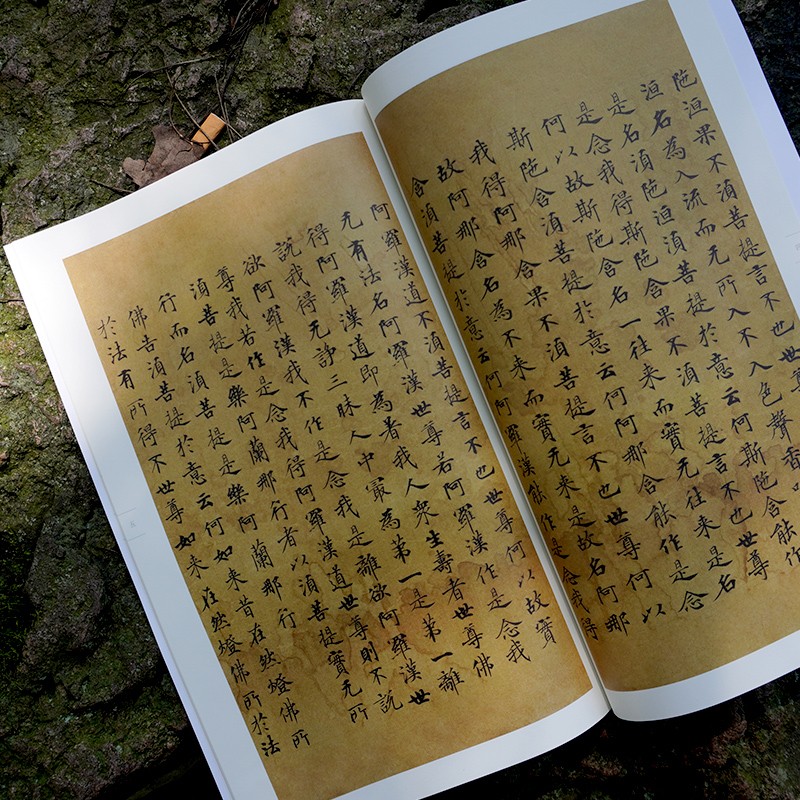 陁洹果不湏菩提言不也世尊
洹名為入流而无所入不入色聲香
是名湏陁洹湏菩提於意云何斯陁含能作
是念我得斯陁含果不湏菩提言不也世尊
何以故斯陁含名一往来而實无往来是名
斯陁含湏菩提於意云何阿那含能作是念
我得阿那含果不湏菩提言不也世尊何以
故阿那含名為不来而實无来是故名阿那
含湏菩提於意云何阿羅漢能作是念我得
阿羅漢道不湏菩提言不也世尊何以故實
无有法名阿羅漢世尊若阿羅漢作是念我
得阿羅漢道即為着我人衆生壽者世尊佛
說我得无諍三昧人中最為第一是第一離
欲阿羅漢我不作是念我是離欲阿羅漢世
尊我若作是念我得阿羅漢道世尊則不說
湏菩提是樂阿蘭那行者以湏菩提實无所
行而名湏菩提是樂阿蘭那行
佛告湏菩提於意云何如来昔在然燈佛所
於法有所得不世尊如来在然燈佛所於法